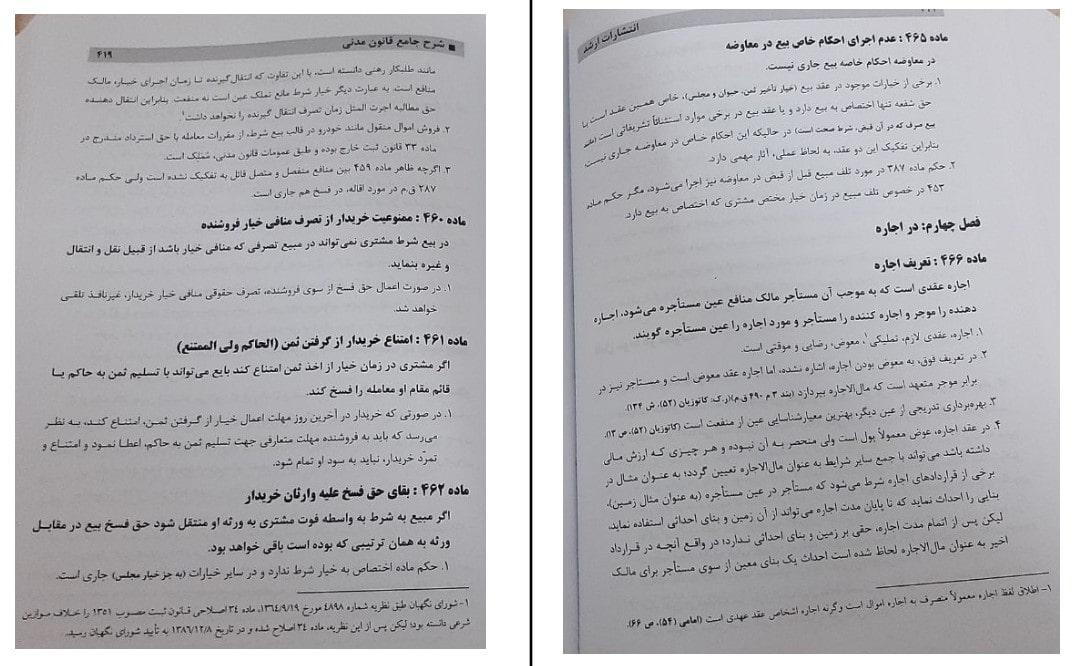 ■ شرح جامع قانون مدنی
۴۱۹
مانند طلبکار رهنی دانسته است، با این تفاوت که انتقال‌گیرنده تا زمان اجرای خیار، مالک
منافع است. به عبارت دیگر خیار شرط مانع تملک عین است نه منفعت. بنابراین انتقال دهنده
حق مطالبه اجرت المثل زمان تصرف انتقال گیرنده را نخواهد داشت۱
۲. فروش اموال منقول مانند خودرو در قالب بیع شرط، از مقررات معامله با حق استرداد مندرج در
ماده ۳۳ قانون ثبت خارج بوده و طبق عمومات قانون مدنی، مُمَلِّک است.
۳. اگرچه ظاهر ماده ۴۵۹ بین منافع منفصل و متصل قائل به تفکیک نشده است ولی حکم ماده
۲۸۷ ق.م در مورد اقاله، در فسخ هم جاری است.
ماده ۴۶۰ : ممنوعیت خریدار از تصرف منافی خیار فروشنده
در بیع شرط مشتری نمی‌تواند در مبیع تصرفی که منافی خیار باشد از قبیل نقل و انتقال
و غیره بنماید.
۱. در صورت اعمال حق فسخ از سوی فروشنده، تصرف حقوقی منافی خیار خریدار، غیرنافذ تلقی
خواهد شد.
ماده ۴۶۱ : امتناع خریدار از گرفتن ثمن (الحاکم ولی الممتنع)
اگر مشتری در زمان خیار از اخذ ثمن امتناع کند بایع می‌تواند با تسلیم ثمن به حاکم یا
قائم مقام او معامله را فسخ کند.
۱. در صورتی که خریدار در آخرین روز مهلت اعمال خیار از گرفتن ثمن، امتناع کند، به نظر
می‌رسد که باید به فروشنده مهلت متعارفی جهت تسلیم ثمن به حاکم، اعطا نمود و امتناع و
تمرّد خریدار، نباید به سود او تمام شود.
ماده ۴۶۲ : بقای حق فسخ علیه وارثان خریدار
اگر مبیع به شرط به واسطه فوت مشتری به ورثه او منتقل شود حق فسخ بیع در مقابل
ورثه به همان ترتیبی که بوده است باقی خواهد بود.
۱. حکم ماده اختصاص به خیار شرط ندارد و در سایر خیارات (به جز خیار مجلس) جاری است.
۱- شورای نگهبان طبق نظریه شماره ۴۸۹۸ مورخ ۱۳۶۴/۹/۱۹، ماده ۳۴ اصلاحی قانون ثبت مصوب ۱۳۵۱ را خلاف موازین
شرعی دانسته بود؛ لیکن پس از این نظریه، ماده ۳۴ اصلاح شده و در تاریخ ۱۳۸۶/۱۲/۸ به تأیید شورای نگهبان رسید.
انتشارات ارشد
ماده ۴۶۵ : عدم اجرای احکام خاص بیع در معاوضه
در معاوضه احکام خاصه بیع جاری نیست.
۱. برخی از خیارات موجود در عقد بیع (خیار تأخیر ثمن، حیوان و مجلس)، خاص همین عقد است یا
حق شفعه تنها اختصاص به بیع دارد و یا عقد بیع در برخی موارد استثنائاً تشریفاتی است (مانند
بیع صرف که در آن قبض، شرط صحت است) در حالیکه این احکام خاص در معاوضه جاری نیست.
بنابراین تفکیک این دو عقد، به لحاظ عملی، آثار مهمی دارد.
۲. حکم ماده ۳۸۷ در مورد تلف مبیع قبل از قبض در معاوضه نیز اجرا می‌شود، مگر حکم ماده
۴۵۳ در خصوص تلف مبیع در زمان خیار مختص مشتری که اختصاص به بیع دارد.
فصل چهارم: در اجاره
ماده ۴۶۶ : تعریف اجاره
اجاره عقدی است که به موجب آن مستأجر مالک منافع عین مستأجره می‌شود، اجاره
دهنده را موجر و اجاره کننده را مستأجر و مورد اجاره را عین مستأجره گویند.
۱. اجاره، عقدی لازم، تملیکی۱، معوض، رضایی و موقتی است.
۲. در تعریف فوق، به معوض بودن اجاره، اشاره نشده، اما اجاره عقد معوض است و مستاجر نیز در
برابر موجر متعهد است که مال‌الاجاره بپردازد (بند ۳ م ۴۹۰ ق.م)(ر.ک: کاتوزیان (۵۲)، ش ۱۳۴).
۳. بهره‌برداری تدریجی از عین دیگر، بهترین معیارشناسایی عین از منفعت است (کاتوزیان (۵۲)، ص ۱۳).
۴. در عقد اجاره، عوض معمولاً پول است ولی منحصر به آن نبوده و هر چیزی که ارزش مالی
داشته باشد می‌تواند با جمع سایر شرایط به عنوان مال‌الاجاره تعیین گردد؛ به عنوان مثال در
برخی از قراردادهای اجاره شرط می‌شود که مستأجر در عین مستأجره (به عنوان مثال زمین)،
بنایی را احداث نماید که تا پایان مدت اجاره می‌تواند از آن زمین و بنای احداثی استفاده نماید،
لیکن پس از اتمام مدت اجاره، حقی بر زمین و بنای احداثی ندارد؛ در واقع آنچه در قرارداد
اخیر به عنوان مال‌الاجاره لحاظ شده است احداث یک بنای معین از سوی مستأجر برای مالک
۱- اطلاق لفظ اجاره معمولاً منصرف به اجاره اموال است وگرنه اجاره اشخاص عقد عهدی است (امامی (۵۴)، ص ۶۶).